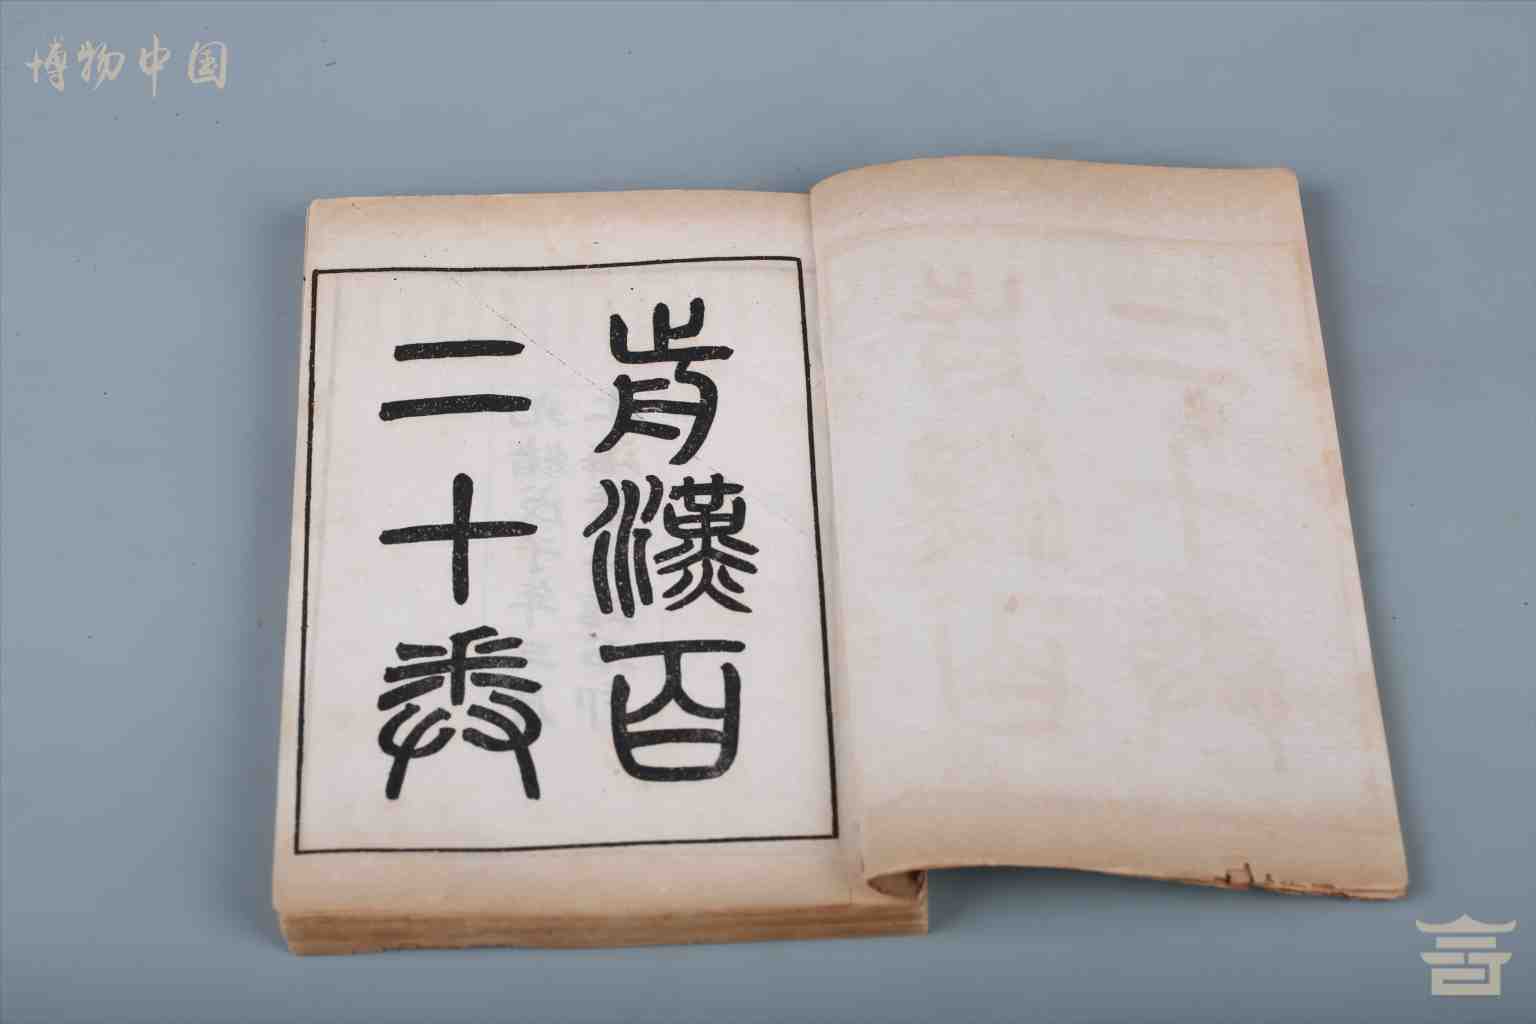 博物中国
前漢百
二十卷